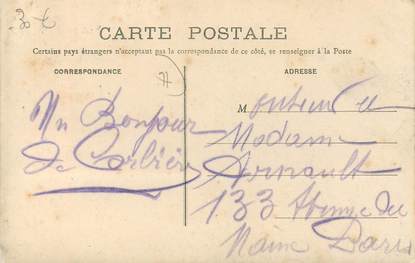 30 €
CARTE POSTALE
Certains pays étrangers n'acceptant pas la correspondance de ce côté, se renseigner à la Poste
CORRESPONDANCE
ADRESSE
77
Un Bonjour
de Corbier
Monsieur et
Madame
Arnault
133 Avenue du
Maine Paris